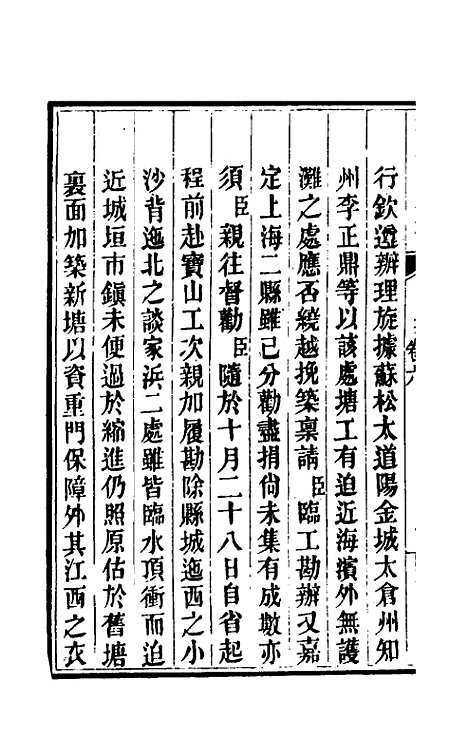 卷六
行欽遵辦理旋據蘇松太道陽金城太倉州知
州李正鼎等以該處塘工有迫近海濱外無護
灘之處應否繞越挽築稟請臣臨工勘辦又嘉
定上海二縣雖已分勸盡捐尙未集有成數亦
須臣親往督勸臣隨於十月二十八日自省起
程前赴寶山工次親加履勘除縣城迤西之小
沙背迤北之談家浜二處雖皆臨水頂衝而迫
近城垣市鎭未便過於縮進仍照原估於舊塘
裏面加築新塘以資重門保障外其江西之衣